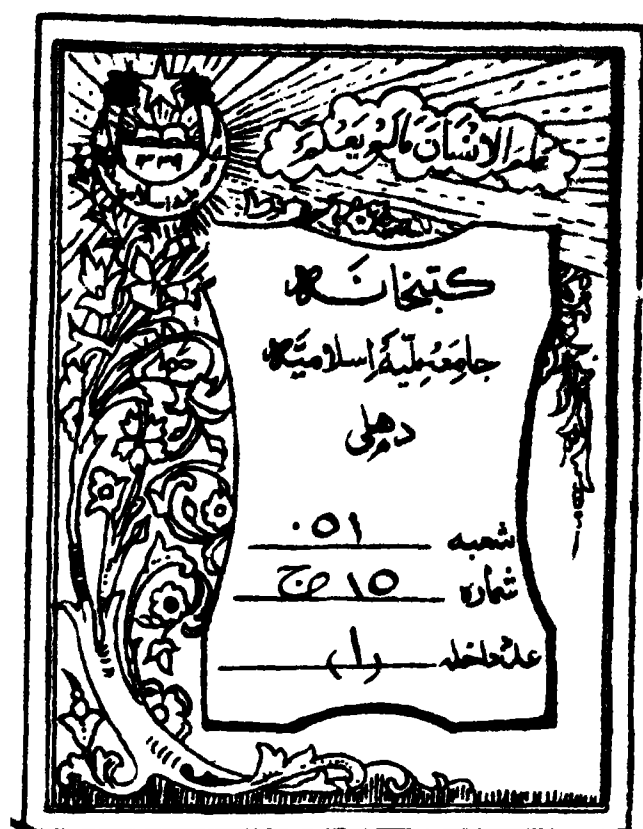 عَلَّمَ الْاِنْسَانَ مَا لَمْ يَعْلَمْ
۱۳۳۹
کتبخانہ
جامعہ ملیۂ اسلامیہ
دہلی
شعبہ ۰۵۱
شمارہ ۱۵ ج
عدد داخلہ (۱)